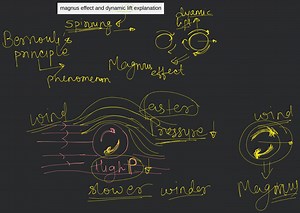 magnus effect and dynamic lift explanation
spinning
dynamic
lift
Bernoulli's
principle
phenomenon
Magnus
effect
wind
faster
Pressure
High P
slower winder
wind
Magnus